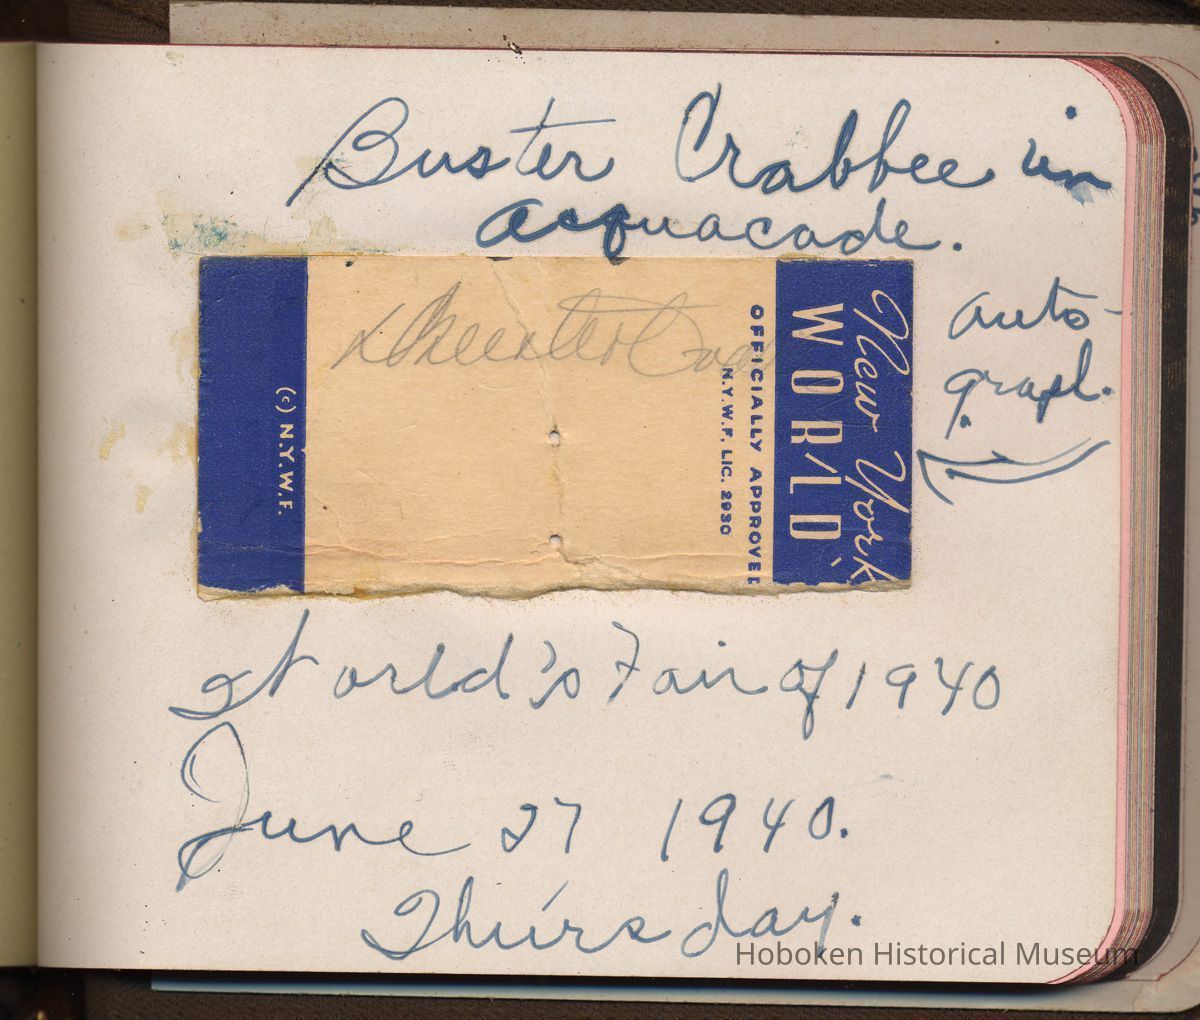 Buster Crabbee in
acquacade.
auto-
graph.
New York
WORLD'
OFFICIALLY APPROVED
N.Y.W.F. LIC. 2930
(c) N.Y.W.F.
World's Fair of 1940
June 27 1940.
Thursday.
Hoboken Historical Museum